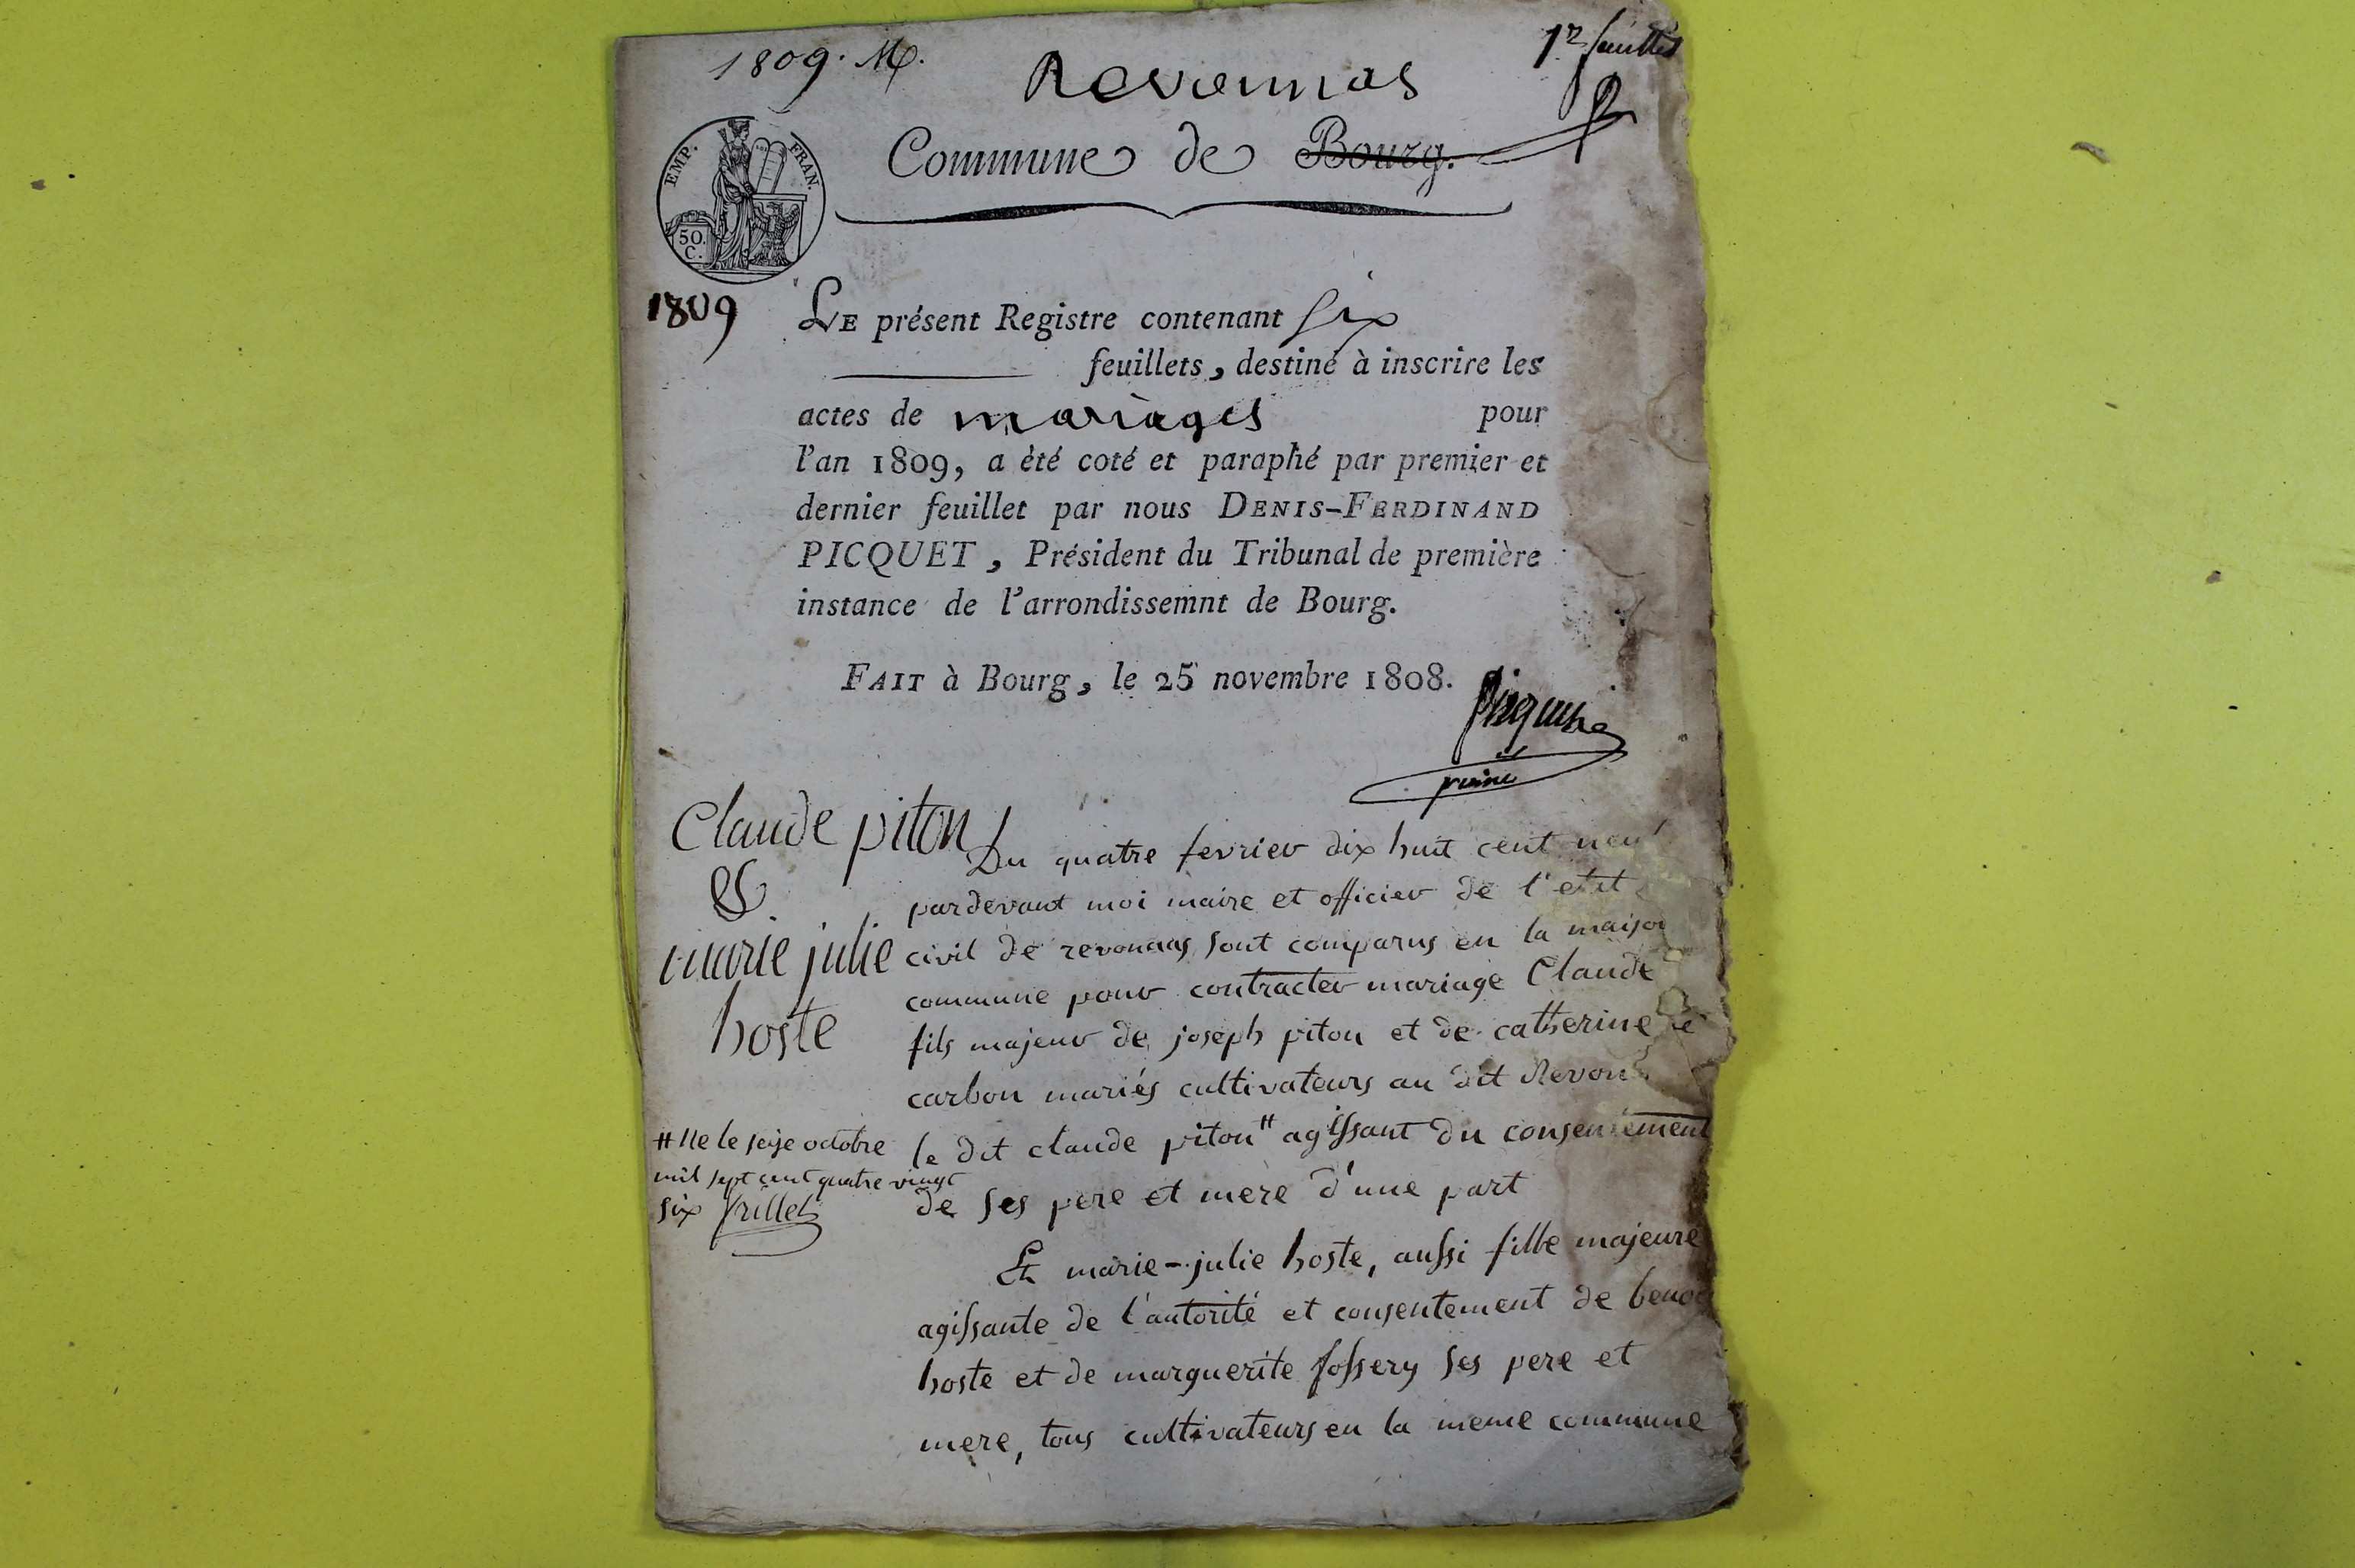 1809. M.
1r feuillet
Revonnas
Commune de Bourg.
EMP. FRAN.
50.
C.
1809
LE présent Registre contenant six
feuillets, destiné à inscrire les
actes de mariages pour
l'an 1809, a été coté et paraphé par premier et
dernier feuillet par nous DENIS-FERDINAND
PICQUET, Président du Tribunal de première
instance de l'arrondissemnt de Bourg.
FAIT à Bourg, le 25 novembre 1808.
Picquet
Claude piton
&
marie julie
hoste
Du quatre fevrier dix huit cent neuf
pardevant moi maire et officier de l'etat
civil de revonnas, sont comparus en la maison
commune pour contracter mariage Claude
fils majeur de joseph piton et de catherine
carbon mariés cultivateurs au dit Revon
# Ne le seize octobre
mil sept cent quatre vingt
six frillet
le dit claude piton # agissant du consentement
de ses pere et mere d'une part
Et marie-julie hoste, aussi fille majeure
agissante de l'autorité et consentement de benoi
hoste et de marguerite fossery ses pere et
mere, tous cultivateurs en la meme commune